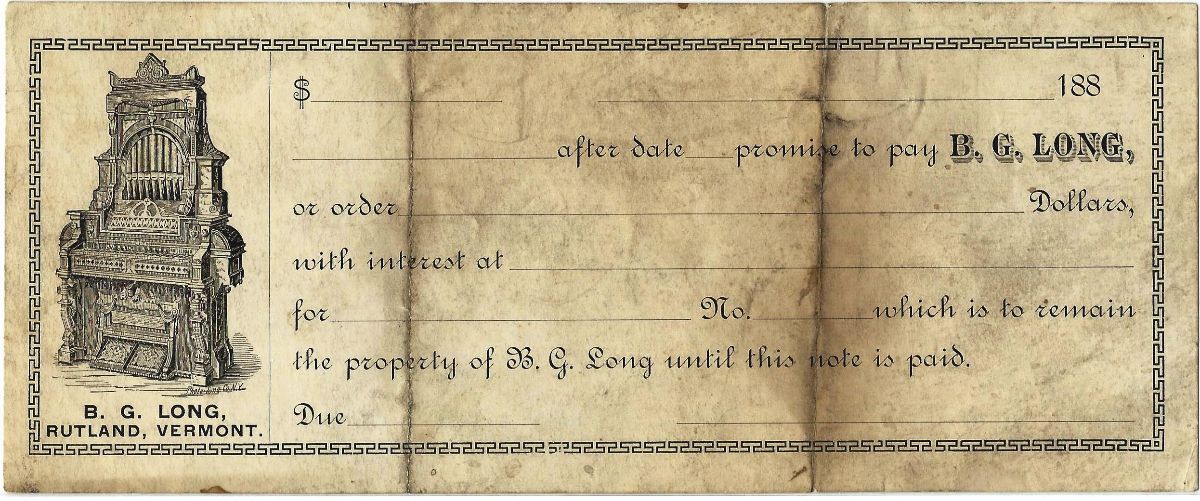 $ 188
after date promise to pay B. G. LONG,
or order Dollars,
with interest at
for No. which is to remain
the property of B. G. Long until this note is paid.
Due
B. G. LONG,
RUTLAND, VERMONT.